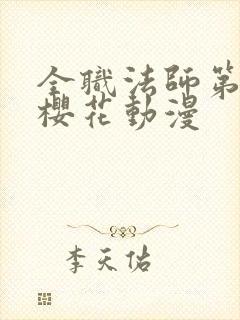 全職法師第
櫻花動漫
李天佑